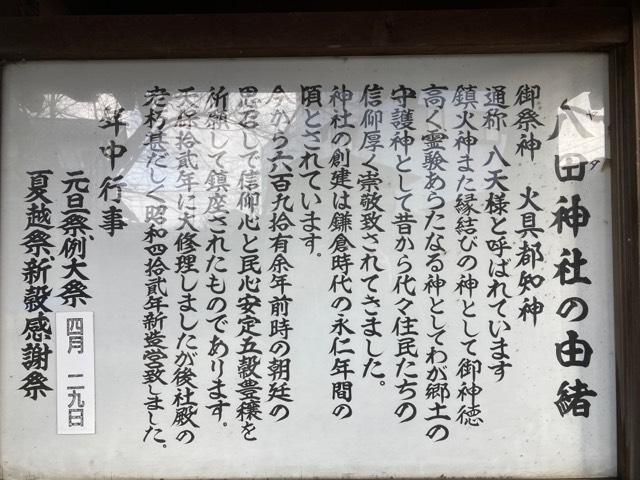 八田神社の由緒
ヤタ
御祭神　火具都知神
通称　八天様と呼ばれています
鎮火神また縁結びの神として御神徳
高く霊験あらたなる神としてわが郷土の
守護神として昔から代々住民たちの
信仰厚く崇敬致されてきました。
神社の創建は鎌倉時代の永仁年間の
頃とされています。
今から六百九拾有余年前時の朝廷の
思召しで信仰心と民心安定五穀豊穣を
祈願して鎮座されたものであります。
天保拾貮年に大修理しましたが後社殿の
老朽甚だしく昭和四拾貮年新造営致しました。
年中行事
元旦祭例大祭　四月　二九日
夏越祭新穀感謝祭